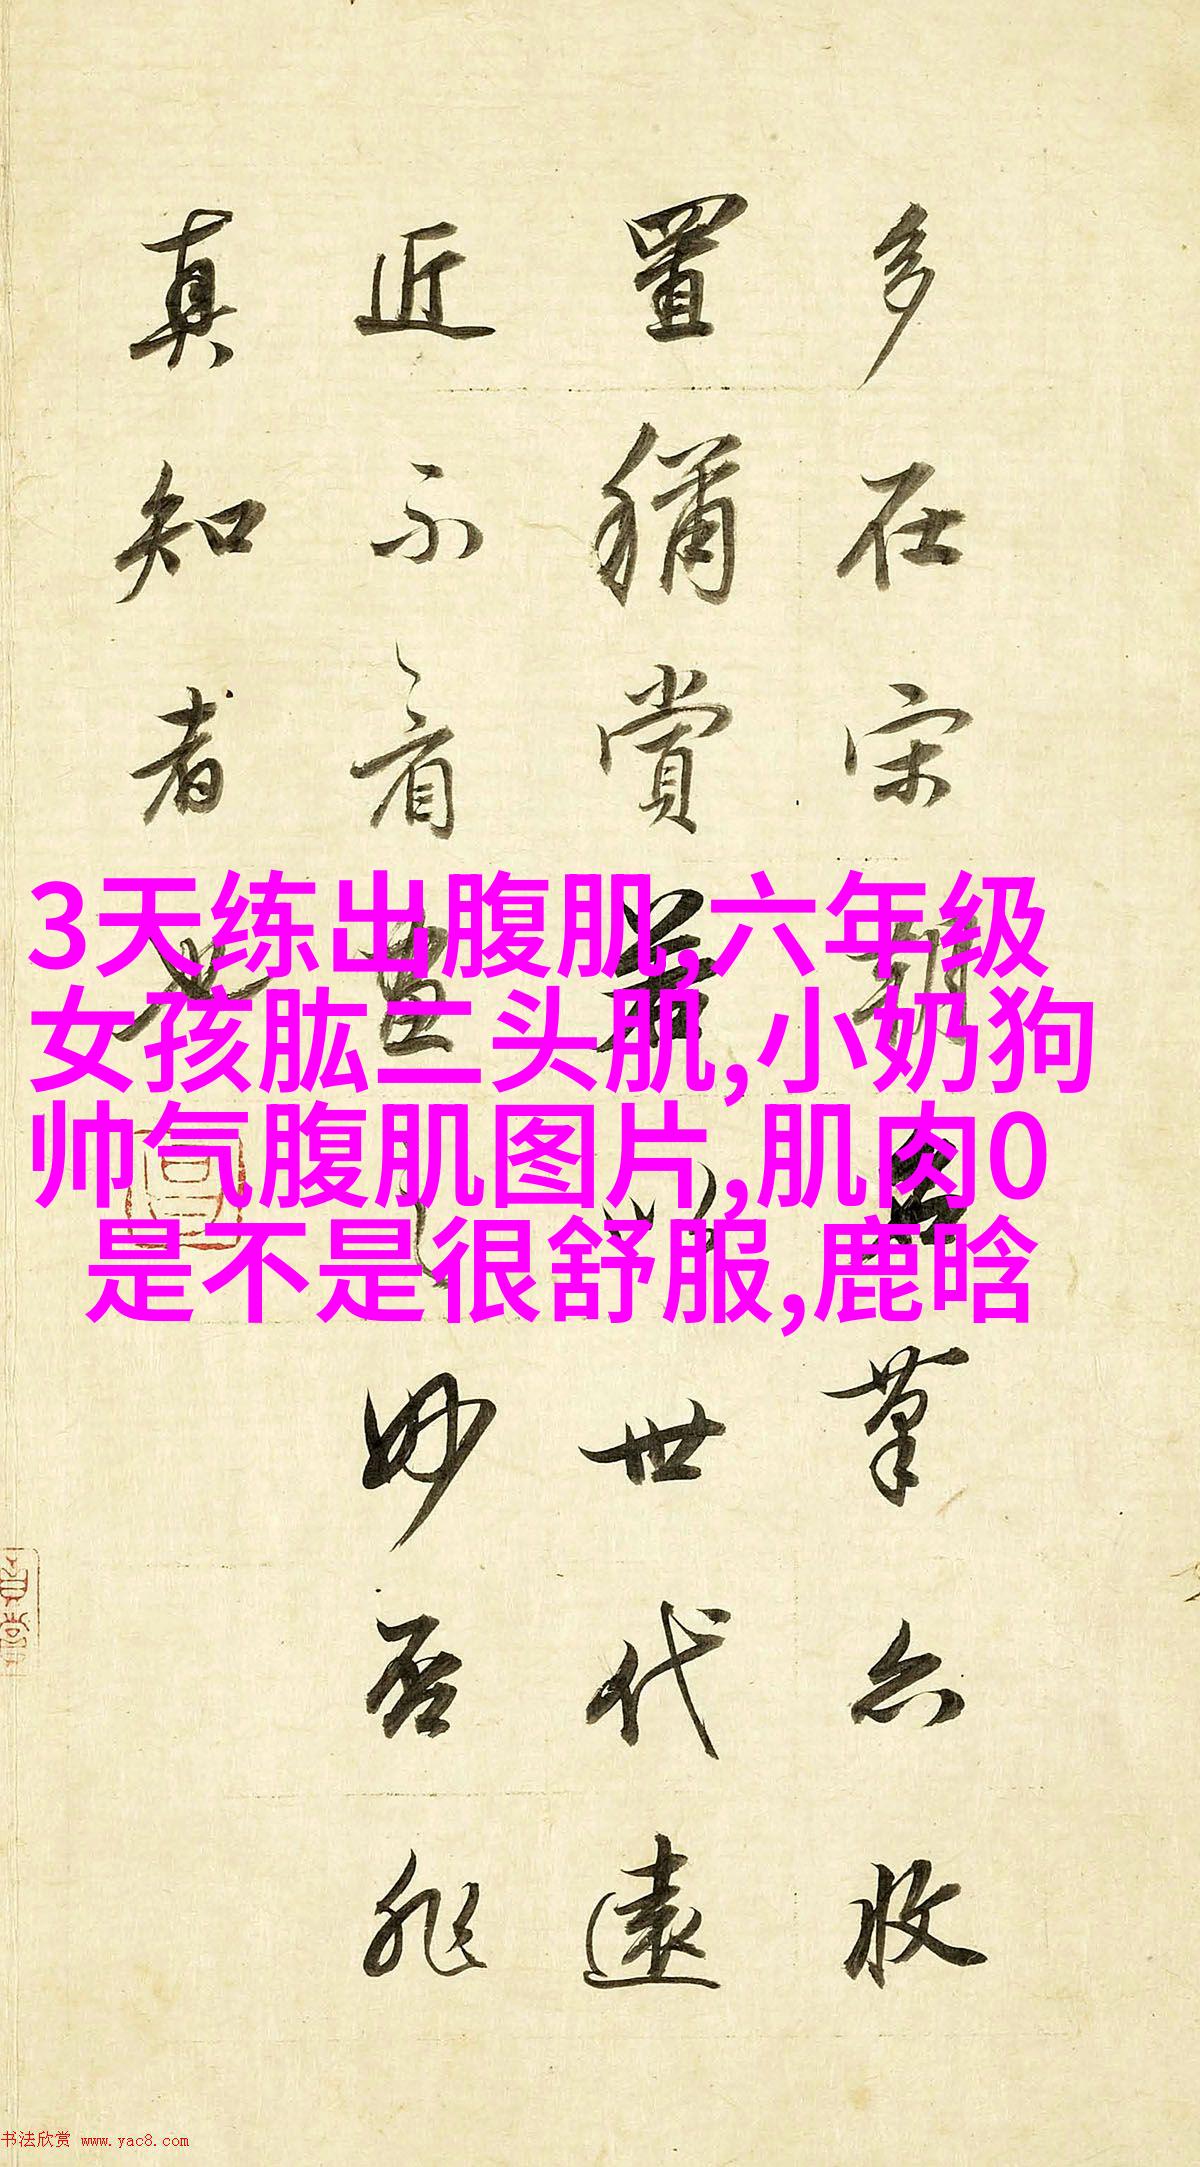 多在宋朝名筆亦收
置猶賞若以世代遠
近不看畫之妙否非
真知者也
3天练出腹肌,六年级
女孩肱二头肌,小奶狗
帅气腹肌图片,肌肉0
是不是很舒服,鹿晗
书法欣赏 www.yac8.com